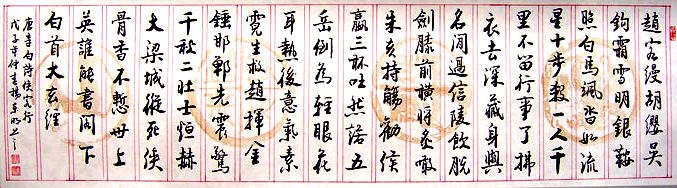 趙客縵胡纓吳
鉤霜雪明銀鞍
照白馬颯沓如流
星十步殺一人千
里不留行事了拂
衣去深藏身與
名閒過信陵飲脫
劍膝前橫將炙啖
朱亥持觴勸侯
嬴三杯吐然諾五
岳倒為輕眼花
耳熱後意氣素
霓生救趙揮金
錘邯鄲先震驚
千秋二壯士烜赫
大梁城縱死俠
骨香不慙世上
英誰能書閣下
白首太玄經
唐李白詩俠客行
戊子年仲春楊